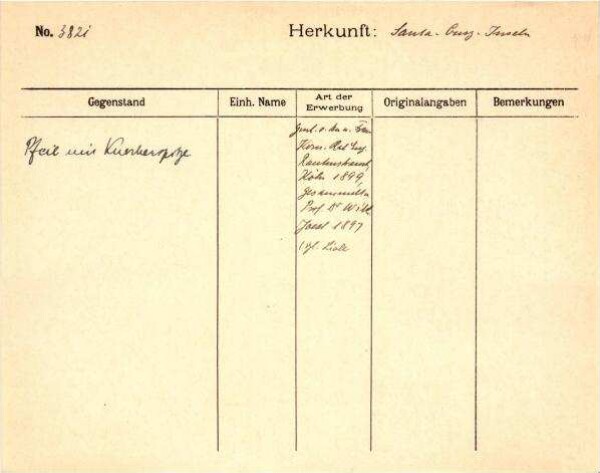 No. 382i
Herkunft: Santa-Cruz-Inseln
Gegenstand
Einh. Name
Art der Erwerbung
Originalangaben
Bemerkungen
Pfeil mit Knochenspitze
Kom. Rat Eug.
Rautenstrauch,
Köln 1899,
gesammelt
Prof. Dr Wilh.
Joest 1897